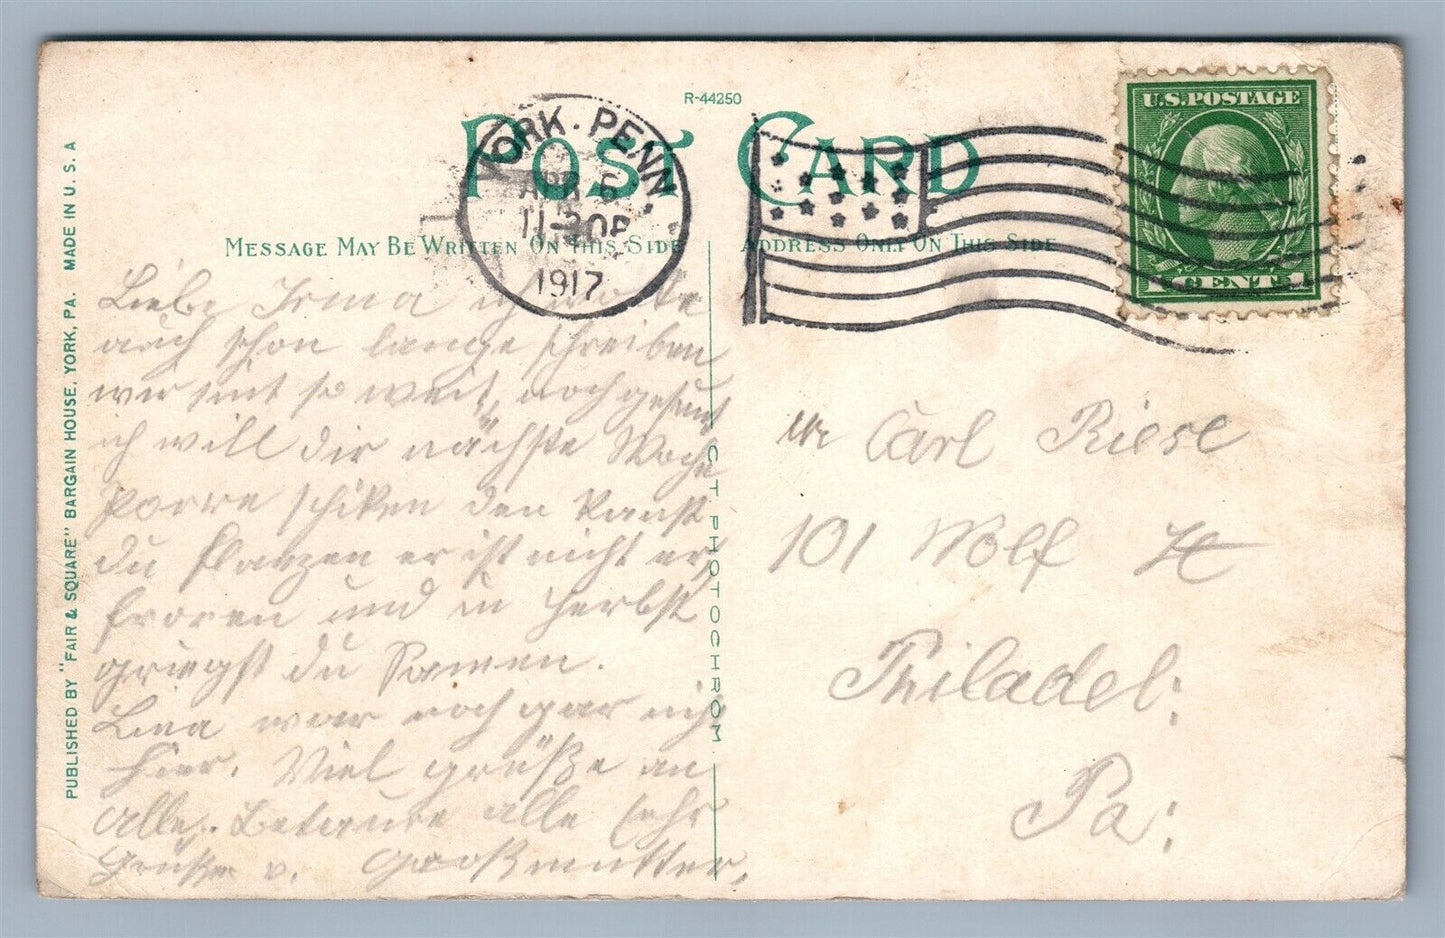 R-44250
POST CARD
YORK. PENN.
APR 5
1917
U.S. POSTAGE
1 CENT 1
MESSAGE MAY BE WRITTEN ON THIS SIDE
ADDRESS ONLY ON THIS SIDE
PUBLISHED BY "FAIR & SQUARE" BARGAIN HOUSE, YORK, PA. MADE IN U. S. A
C T PHOTOCHROM
Liebe Irma ich wollte
auch schon lange schreiben
wir sint so weit noch gesunt
ich will dir nächste Woche
schiken den kanst
du flanzen er ist nicht er
froren und in Herbst
griegst du Samen.
Lina war noch gar nicht
hier. Viel grüße an
alle. alle sehr
Grüße v. Großmutter.
Mr Carl Riese
101 Wolf St
Philadel:
Pa: